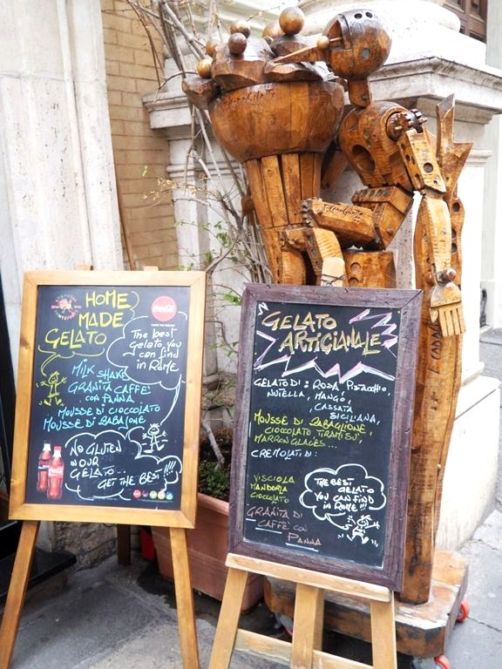 HOME
MADE
GELATO
The best
gelato, you
can find
in ROME
MILK SHAKE
GRANITA CAFFE'
CON PANNA
MOUSSE DI CIOCCOLATO
MOUSSE DI ZABAIONE
NO GLUTEN
IN OUR
GELATO...
GET THE BEST!!!
GELATO
ARTIGIANALE
GELATO DI: ROSA, PISTACCHIO,
NUTELLA, MANGO,
CASSATA
SICILIANA,
MOUSSE DI ZABAGLIONE
CIOCCOLATO TIRAMISU',
MARRON GLACES...
CREMOLATI DI:
VISCIOLA
MANDORLA
CIOCCOLATO
THE BEST
GELATO
YOU CAN FIND
IN ROME!!!
GRANITA DI
CAFFE' CON
PANNA